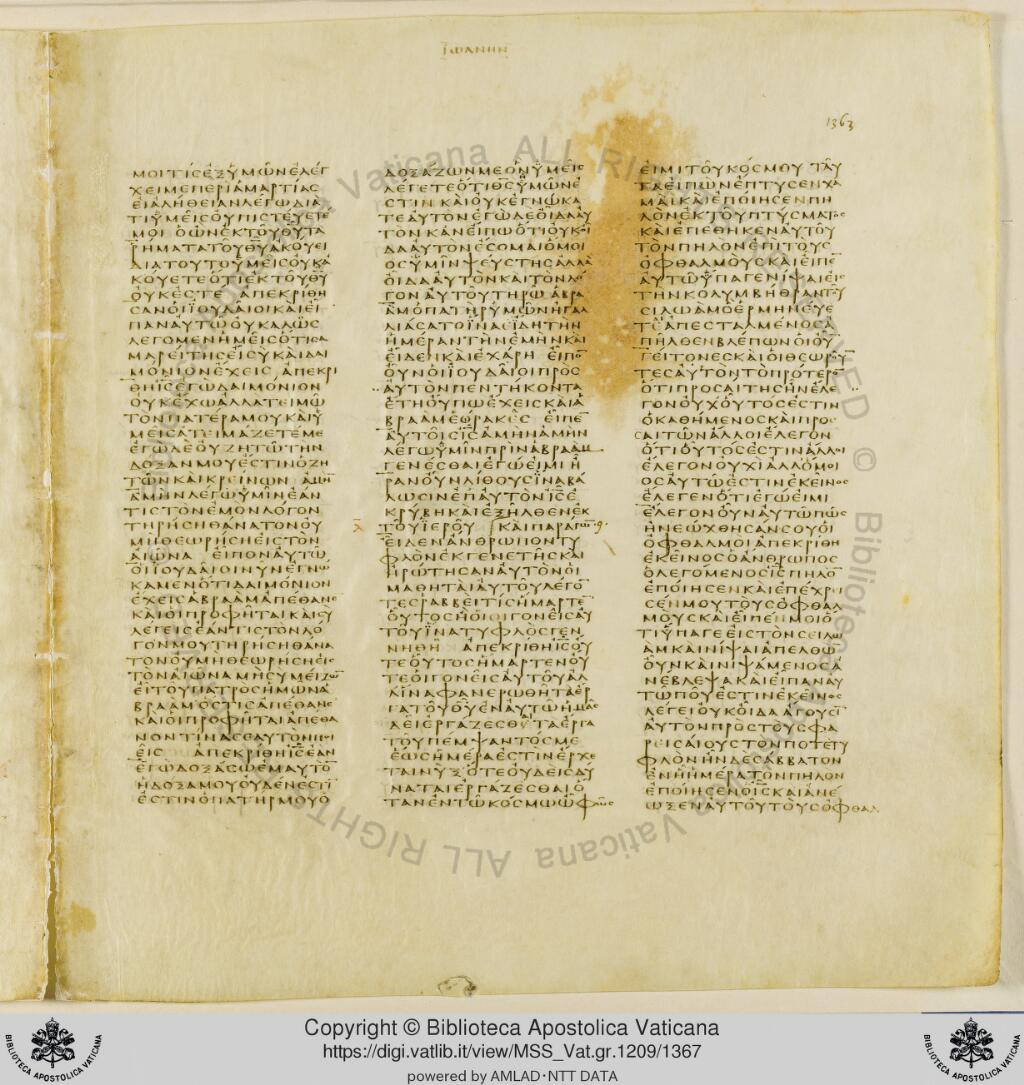 ΙΩΑΝΗΝ
1363
ΜΟΙΤΙΣΕΞΥΜΩΝΕΛΕΓ
ΧΕΙΜΕΠΕΡΙΑΜΑΡΤΙΑΣ
ΕΙΑΛΗΘΕΙΑΝΛΕΓΩΔΙΑ
ΤΙΥΜΕΙΣΟΥΠΙΣΤΕΥΕΤΕ
ΜΟΙ ΟΩΝΕΚΤΟΥΘΥΤΑ
ΡΗΜΑΤΑΤΟΥΘΥΑΚΟΥΕΙ
ΔΙΑΤΟΥΤΟΥΜΕΙΣΟΥΚΑ
ΚΟΥΕΤΕΟΤΙΕΚΤΟΥΘΥ
ΟΥΚΕΣΤΕ ΑΠΕΚΡΙΘΗ
ΣΑΝΟΙΙΟΥΔΑΙΟΙΚΑΙΕΙ
ΠΑΝΑΥΤΩΟΥΚΑΛΩΣ
ΛΕΓΟΜΕΝΗΜΕΙΣΟΤΙΣΑ
ΜΑΡΕΙΤΗΣΕΙΣΥΚΑΙΔΑΙ
ΜΟΝΙΟΝΕΧΕΙΣ ΑΠΕΚΡΙ
ΘΗΙΣΕΓΩΔΑΙΜΟΝΙΟΝ
ΟΥΚΕΧΩΑΛΛΑΤΕΙΜΩ
ΤΟΝΠΑΤΕΡΑΜΟΥΚΑΙΥ
ΜΕΙΣΑΤΕΙΜΑΖΕΤΕΜΕ
ΕΓΩΔΕΟΥΖΗΤΩΤΗΝ
ΔΟΞΑΝΜΟΥΕΣΤΙΝΟΖΗ
ΤΩΝΚΑΙΚΡΕΙΝΩΝ ΑΜΗ
ΑΜΗΝΛΕΓΩΥΜΙΝΕΑΝ
ΤΙΣΤΟΝΕΜΟΝΛΟΓΟΝ
ΤΗΡΗΣΗΘΑΝΑΤΟΝΟΥ
ΜΗΘΕΩΡΗΣΗΕΙΣΤΟΝ
ΑΙΩΝΑ ΕΙΠΟΝΑΥΤΩ
ΟΙΙΟΥΔΑΙΟΙΝΥΝΕΓΝΩ
ΚΑΜΕΝΟΤΙΔΑΙΜΟΝΙΟΝ
ΕΧΕΙΣΑΒΡΑΑΜΑΠΕΘΑΝΕ
ΚΑΙΟΙΠΡΟΦΗΤΑΙΚΑΙΣΥ
ΛΕΓΕΙΣΕΑΝΤΙΣΤΟΝΛΟ
ΓΟΝΜΟΥΤΗΡΗΣΗΘΑΝΑ
ΤΟΝΟΥΜΗΘΕΩΡΗΣΗΕΙΣ
ΤΟΝΑΙΩΝΑΜΗΣΥΜΕΙΖΩ
ΕΙΤΟΥΠΑΤΡΟΣΗΜΩΝΑ
ΒΡΑΑΜΟΣΤΙΣΑΠΕΘΑΝΕ
ΚΑΙΟΙΠΡΟΦΗΤΑΙΑΠΕΘΑ
ΝΟΝΤΙΝΑΣΕΑΥΤΟΝΠΟΙ
ΕΙΣ ΑΠΕΚΡΙΘΗΙΣΕΑΝ
ΕΓΩΔΟΞΑΣΩΕΜΑΥΤΟ
ΗΔΟΞΑΜΟΥΟΥΔΕΝΕΣΤΙ
ΕΣΤΙΝΟΠΑΤΗΡΜΟΥΟ
ΔΟΞΑΖΩΝΜΕΟΝΥΜΕΙΣ
ΛΕΓΕΤΕΟΤΙΘΣΥΜΩΝΕ
ΣΤΙΝ ΚΑΙΟΥΚΕΓΝΩΚΑ
ΤΕΑΥΤΟΝΕΓΩΔΕΟΙΔΑΑΥ
ΤΟΝ ΚΑΝΕΙΠΩΟΤΙΟΥΚΟΙ
ΔΑΑΥΤΟΝΕΣΟΜΑΙΟΜΟΙ
ΟΣΥΜΙΝΨΕΥΣΤΗΣΑΛΛΑ
ΟΙΔΑΑΥΤΟΝΚΑΙΤΟΝΛΟ
ΓΟΝΑΥΤΟΥΤΗΡΩ ΑΒΡΑ
ΑΜΟΠΑΤΗΡΥΜΩΝΗΓΑΛ
ΛΙΑΣΑΤΟΙΝΑΕΙΔΗΤΗΝ
ΗΜΕΡΑΝΤΗΝΕΜΗΝΚΑΙ
ΕΙΔΕΝΚΑΙΕΧΑΡΗ ΕΙΠΟ
ΟΥΝΟΙΙΟΥΔΑΙΟΙΠΡΟΣ
ΑΥΤΟΝΠΕΝΤΗΚΟΝΤΑ
ΕΤΗΟΥΠΩΕΧΕΙΣΚΑΙΑ
ΒΡΑΑΜΕΩΡΑΚΕΣ ΕΙΠΕ
ΑΥΤΟΙΣΙΣΑΜΗΝΑΜΗΝ
ΛΕΓΩΥΜΙΝΠΡΙΝΑΒΡΑΑΜ
ΓΕΝΕΣΘΑΙΕΓΩΕΙΜΙ Η
ΡΑΝΟΥΝΛΙΘΟΥΣΙΝΑΒΑ
ΛΩΣΙΝΕΠΑΥΤΟΝΙΣΕ
ΚΡΥΒΗΚΑΙΕΞΗΛΘΕΝΕΚ
ΤΟΥΙΕΡΟΥ ΚΑΙΠΑΡΑΓΩ
ΕΙΔΕΝΑΝΘΡΩΠΟΝΤΥ
ΦΛΟΝΕΚΓΕΝΕΤΗΣΚΑΙ
ΗΡΩΤΗΣΑΝΑΥΤΟΝΟΙ
ΜΑΘΗΤΑΙΑΥΤΟΥΛΕΓΟ
ΤΕΣΡΑΒΒΕΙΤΙΣΗΜΑΡΤΕ
ΟΥΤΟΣΗΟΙΓΟΝΕΙΣΑΥ
ΤΟΥΙΝΑΤΥΦΛΟΣΓΕΝ
ΝΗΘΗ ΑΠΕΚΡΙΘΗΙΣΟΥ
ΤΕΟΥΤΟΣΗΜΑΡΤΕΝΟΥ
ΤΕΟΙΓΟΝΕΙΣΑΥΤΟΥΑΛ
ΛΙΝΑΦΑΝΕΡΩΘΗΤΑΕΡ
ΓΑΤΟΥΘΥΕΝΑΥΤΩΗΜΑΣ
ΔΕΙΕΡΓΑΖΕΣΘΕΤΑΕΡΓΑ
ΤΟΥΠΕΜΨΑΝΤΟΣΜΕ
ΕΩΣΗΜΕΡΑΕΣΤΙΝΕΡΧΕ
ΤΑΙΝΥΞΟΤΕΟΥΔΕΙΣΔΥ
ΝΑΤΑΙΕΡΓΑΖΕΣΘΑΙΟ
ΤΑΝΕΝΤΩΚΟΣΜΩΩΦΩΣ
ΕΙΜΙΤΟΥΚΟΣΜΟΥ ΤΑΥ
ΤΑΕΙΠΩΝΕΠΤΥΣΕΝΧΑ
ΜΑΙΚΑΙΕΠΟΙΗΣΕΝΠΗ
ΛΟΝΕΚΤΟΥΠΤΥΣΜΑΤΟΣ
ΚΑΙΕΠΕΘΗΚΕΝΑΥΤΟΥ
ΤΟΝΠΗΛΟΝΕΠΙΤΟΥΣ
ΟΦΘΑΛΜΟΥΣΚΑΙΕΙΠΕ
ΑΥΤΩΥΠΑΓΕΝΙΨΑΙΕΙΣ
ΤΗΝΚΟΛΥΜΒΗΘΡΑΝΤΟΥ
ΣΙΛΩΑΜΟΕΡΜΗΝΕΥΕ
ΤΕΑΠΕΣΤΑΛΜΕΝΟΣΑ
ΠΗΛΘΕΝΒΛΕΠΩΝΟΙΟΥ
ΓΕΙΤΟΝΕΣΚΑΙΟΙΘΕΩΡΟΥ
ΤΕΣΑΥΤΟΝΤΟΠΡΟΤΕΡΟ
ΟΤΙΠΡΟΣΑΙΤΗΣΗΝΕΛΕ
ΓΟΝΟΥΧΟΥΤΟΣΕΣΤΙΝ
ΟΚΑΘΗΜΕΝΟΣΚΑΙΠΡΟΣ
ΑΙΤΩΝΑΛΛΟΙΕΛΕΓΟΝ
ΟΤΙΟΥΤΟΣΕΣΤΙΝΑΛΛΟΙ
ΕΛΕΓΟΝΟΥΧΙΑΛΛΟΜΟΙ
ΟΣΑΥΤΩΕΣΤΙΝΕΚΕΙΝΟΣ
ΕΛΕΓΕΝΟΤΙΕΓΩΕΙΜΙ
ΕΛΕΓΟΝΟΥΝΑΥΤΩΠΩΣ
ΗΝΕΩΧΘΗΣΑΝΣΟΥΟΙ
ΟΦΘΑΛΜΟΙΑΠΕΚΡΙΘΗ
ΕΚΕΙΝΟΣΟΑΝΘΡΩΠΟΣ
ΟΛΕΓΟΜΕΝΟΣΙΣΠΗΛΟ
ΕΠΟΙΗΣΕΝΚΑΙΕΠΕΧΡΕΙ
ΣΕΝΜΟΥΤΟΥΣΟΦΘΑΛ
ΜΟΥΣΚΑΙΕΙΠΕΝΜΟΙΟ
ΤΙΥΠΑΓΕΕΙΣΤΟΝΣΕΙΛΩ
ΑΜΚΑΙΝΙΨΑΙΑΠΕΛΘΩ
ΟΥΝΚΑΙΝΙΨΑΜΕΝΟΣΑ
ΝΕΒΛΕΨΑΚΑΙΕΙΠΑΝΑΥ
ΤΩΠΟΥΕΣΤΙΝΕΚΕΙΝΟΣ
ΛΕΓΕΙΟΥΚΟΙΔΑΑΓΟΥΣΙ
ΑΥΤΟΝΠΡΟΣΤΟΥΣΦΑ
ΡΕΙΣΑΙΟΥΣΤΟΝΠΟΤΕΤΥ
ΦΛΟΝΗΝΔΕΣΑΒΒΑΤΟΝ
ΕΝΗΗΜΕΡΑΤΟΝΠΗΛΟΝ
ΕΠΟΙΗΣΕΝΟΙΣΚΑΙΑΝΕ
ΩΞΕΝΑΥΤΟΥΤΟΥΣΟΦΘΑΛ
Copyright © Biblioteca Apostolica Vaticana
https://digi.vatlib.it/view/MSS_Vat.gr.1209/1367
powered by AMLAD·NTT DATA
BIBLIOTECA APOSTOLICA VATICANA
BIBLIOTECA APOSTOLICA VATICANA